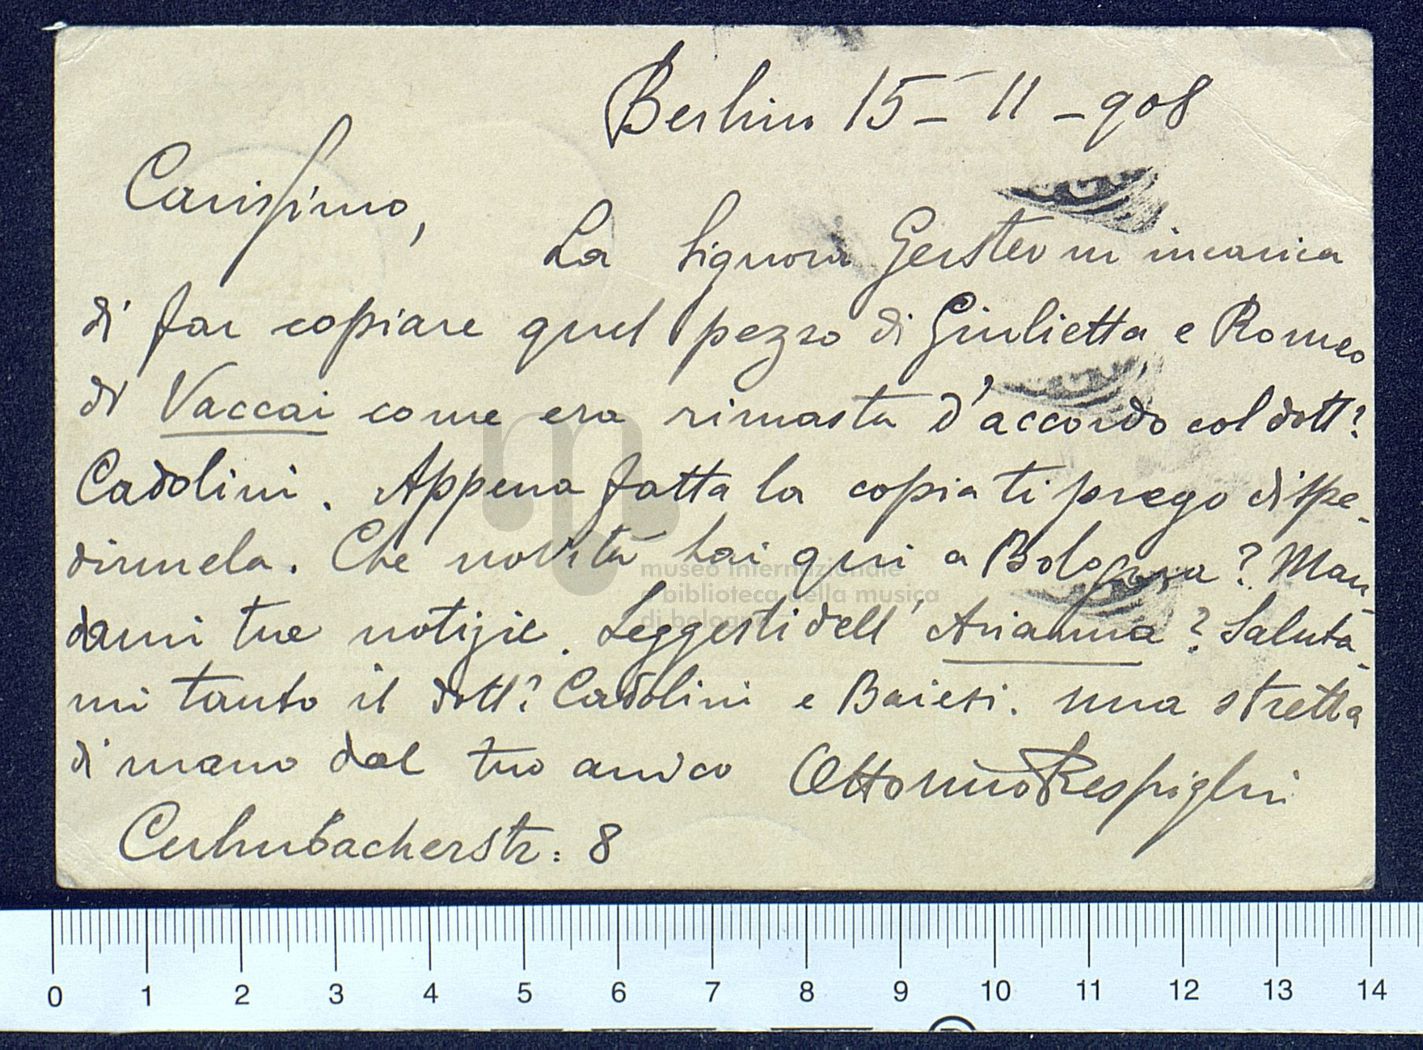 Berlin 15-11-908
Carissimo,
La Signora Gerster m incarica
di far copiare quel pezzo di Giulietta e Romeo
di Vaccai come era rimasta d'accordo col dott:
Cadolini. Appena fatta la copia ti prego di spe-
dirmela. Che novità hai qui a Bologna? Man-
dami tue notizie. Leggesti dell' Arianna? Saluta-
mi tanto il dott: Cadolini e Baiesi. una stretta
di mano dal tuo amico Ottorino Respighi
Culmbacherstr: 8
museo internazionale
e biblioteca della musica
di bologna
0 1 2 3 4 5 6 7 8 9 10 11 12 13 14